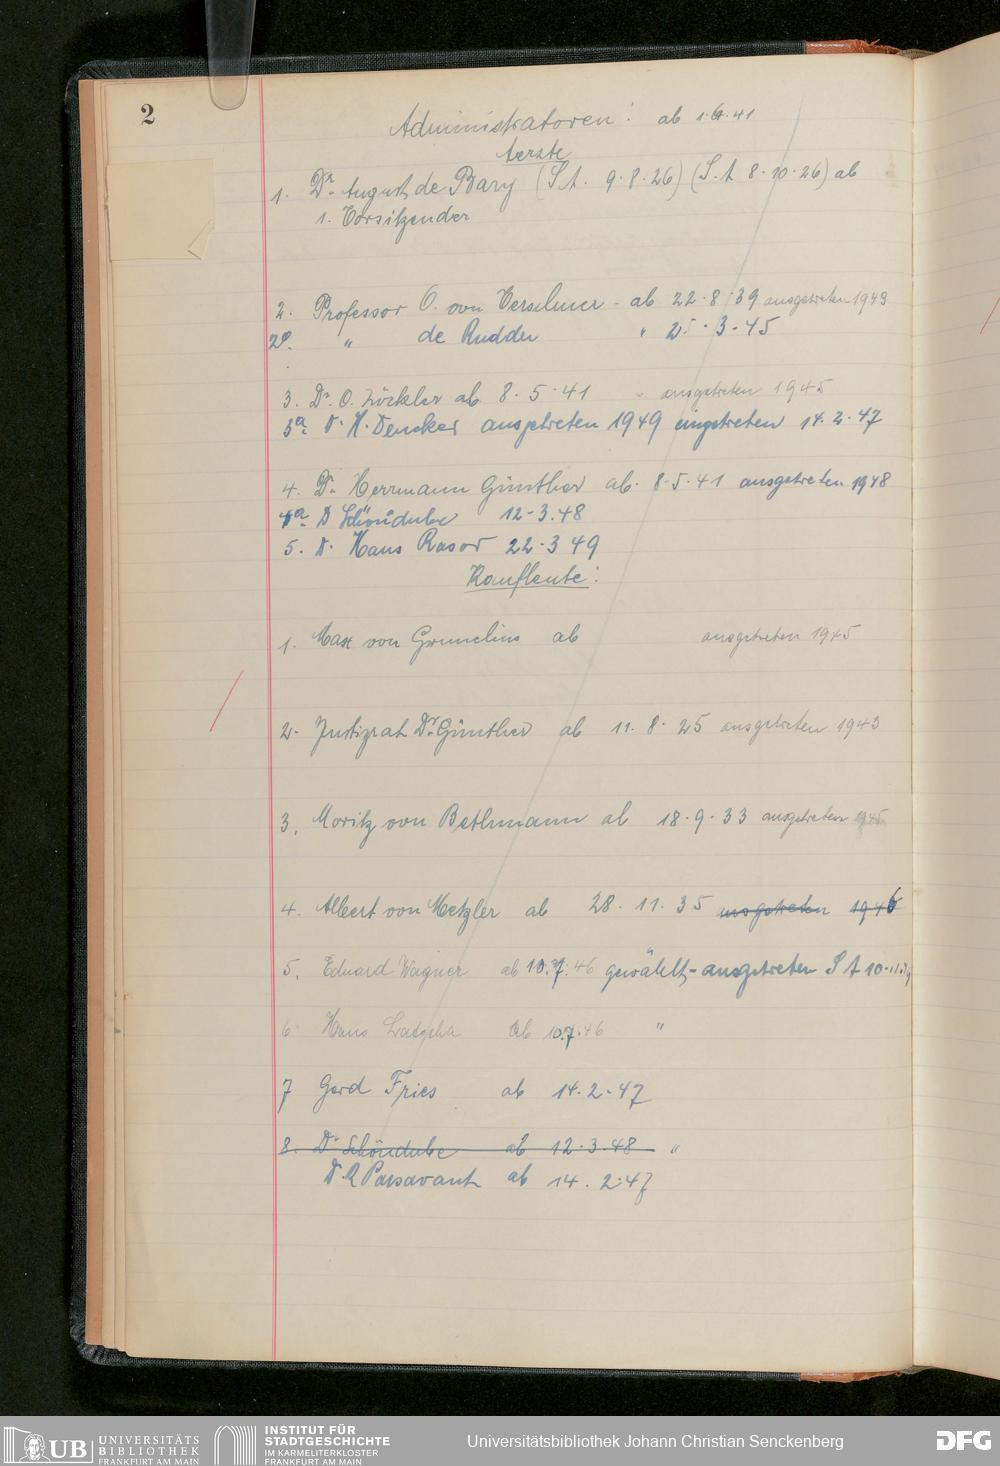 2
Administratoren: ab 1.6.41
Aerzte
1. Dr. August de Bary (S.A. 9.8.26) (S.A 8.10.26) ab
1. Vorsitzender
2. Professor O. von Verschuer - ab 22.8.39 ausgetreten 1949
2a. " de Rudder " 25.3.45
3. Dr. O. Zöckler ab 8.5.41 - ausgetreten 1945
3a. Dr. H. Dencker ausgetreten 1949 eingetreten 14.2.47
4. Dr. Herrmann Günther ab. 8.5.41 ausgetreten 1948
4a. D Schöndube 12-3.48
5. Dr. Hans Rasor 22-3 49
Kaufleute:
1. Max von Grunelius ab ausgetreten 1945
2. Justizrat Dr. Günther ab 11.8.25 ausgetreten 1943
3. Moritz von Bethmann ab 18.9.33 ausgetreten 1945
4. Albert von Metzler ab 28.11.35 ausgetreten 1946
5. Eduard Wagner ab 10.7.46 gewählt, - ausgetreten S A 10.11.
6 Hans ab 10.7.46 "
7 Gerd Fries ab 14.2.47
8. Dr Schöndube ab 12.3.48 "
D. R Passavant ab 14.2.47
UB UNIVERSITÄTS
BIBLIOTHEK
FRANKFURT AM MAIN
INSTITUT FÜR
STADTGESCHICHTE
IM KARMELITERKLOSTER
FRANKFURT AM MAIN
Universitätsbibliothek Johann Christian Senckenberg
DFG